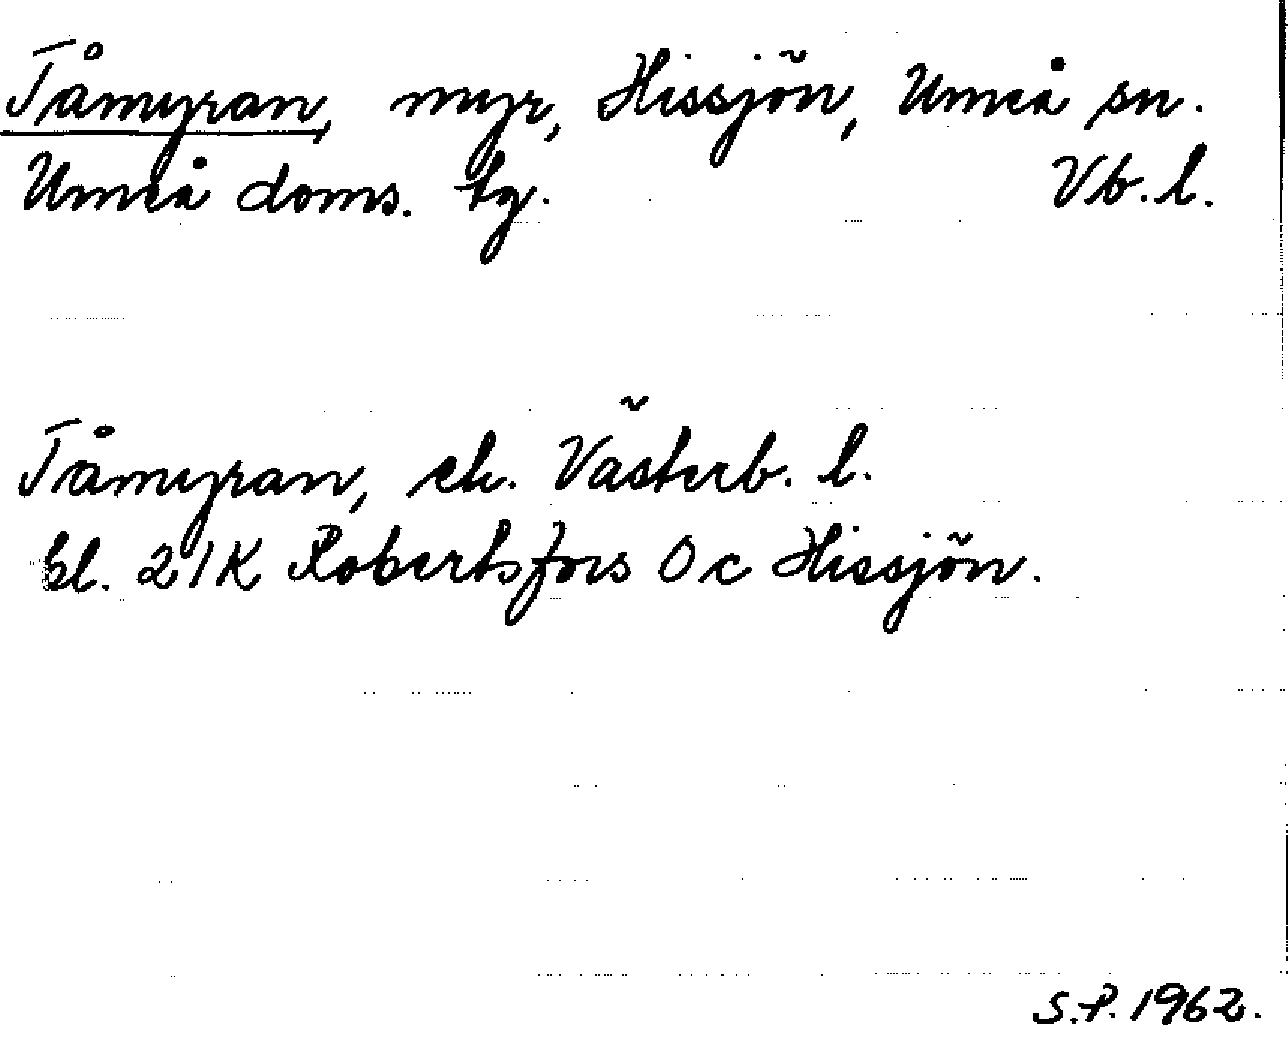 Tåmyran, myr, Hissjön, Umeå sn.
Umeå doms. tg. Vb. l.
Tåmyran, ek. Västerb. l.
bl. 21K Robertsfors 0c Hissjön.
S.P. 1962.